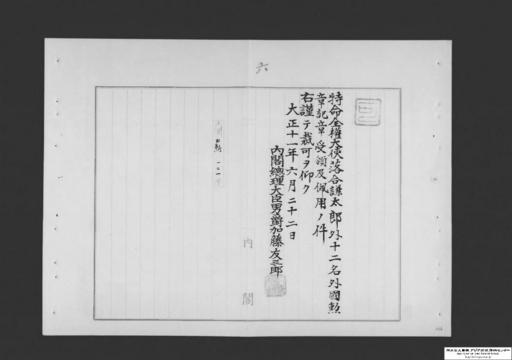 六
特命全權大使落合謙太郎外十二名外國勲
章記章受領及佩用ノ件
右謹テ裁可ヲ仰ク
大正十一年六月二十二日
內閣總理大臣男爵加藤友三郎
內閣